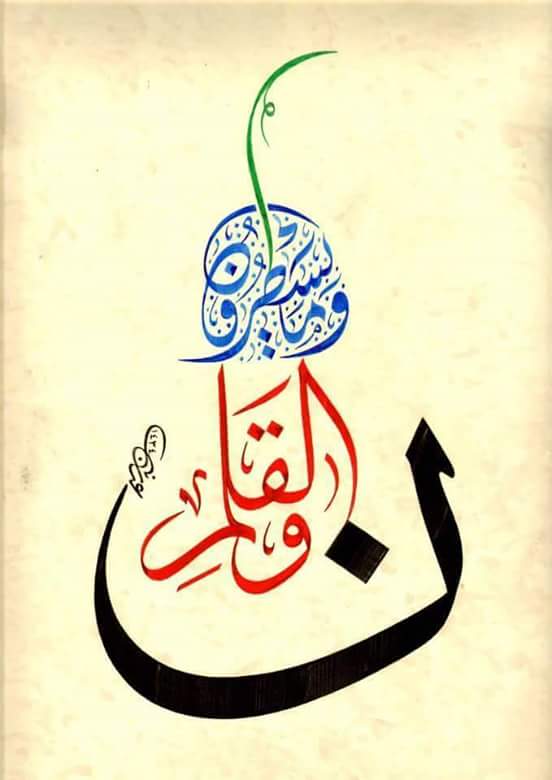 ن
والقلمِ
وَمَا يَسْطُرُونَ
١٤٣٤